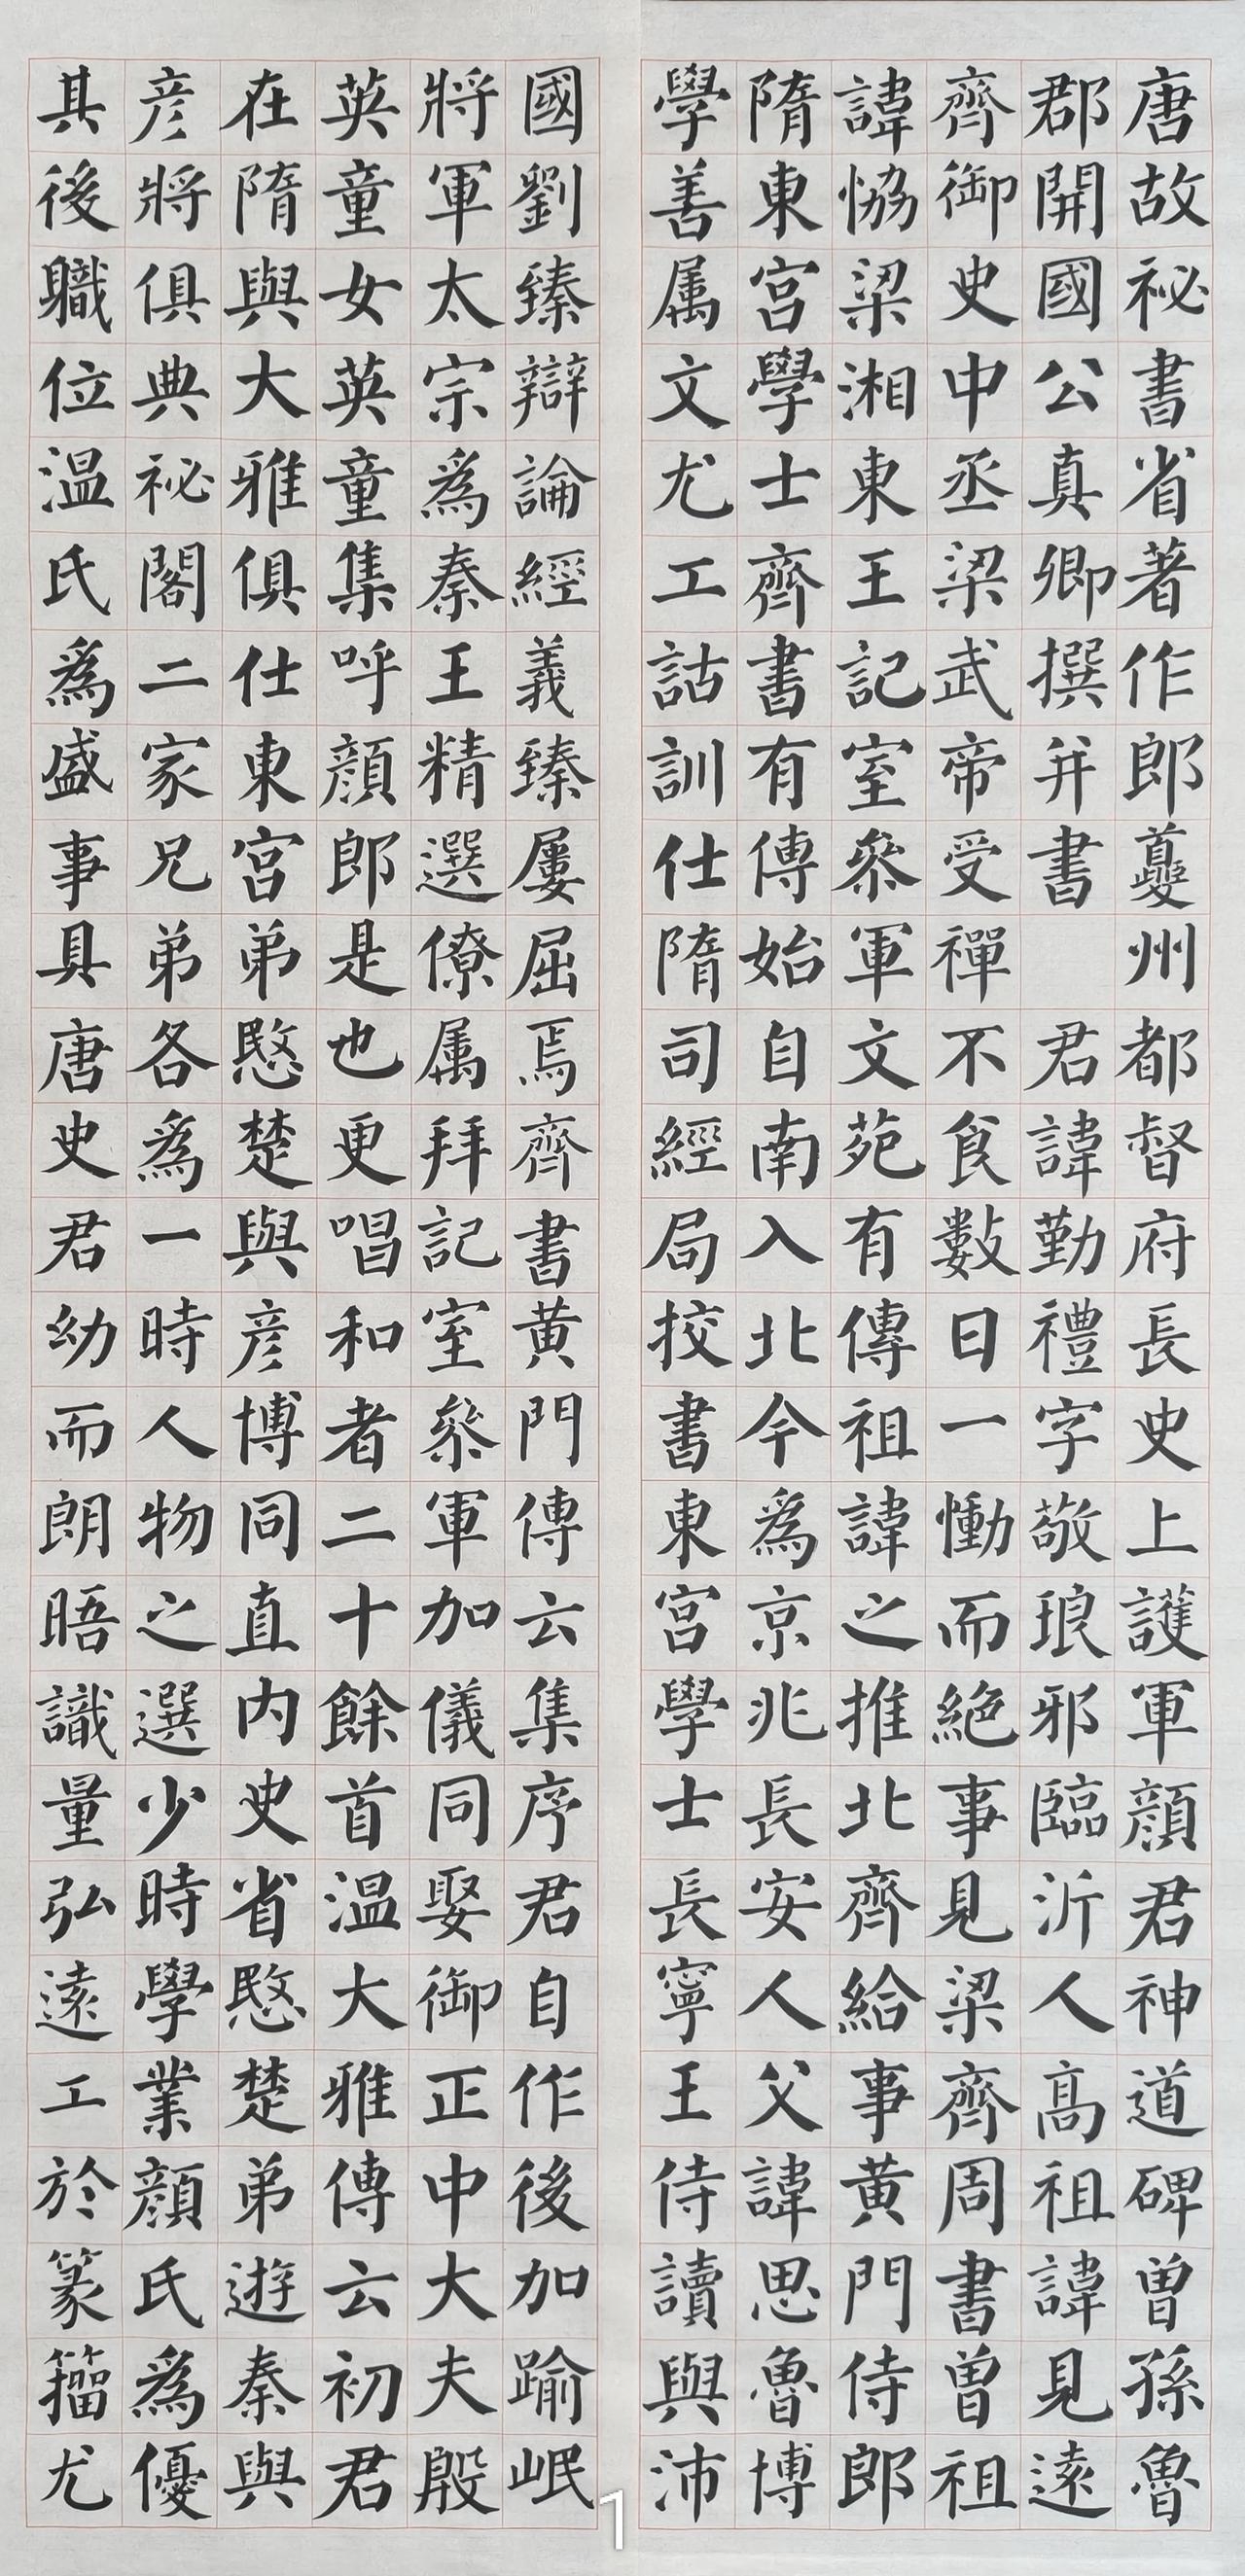 唐故祕書省著作郎夔州都督府長史上護軍顏君神道碑曾孫魯
郡開國公真卿撰并書君諱勤禮字敬琅邪臨沂人高祖諱見遠
齊御史中丞梁武帝受禪不食數日一慟而絕事見梁齊周書曾祖
諱恊梁湘東王記室叅軍文苑有傳祖諱之推北齊給事黃門侍郎
隋東宮學士齊書有傳始自南入北今爲京兆長安人父諱思魯博
學善属文尤工詁訓仕隋司經局挍書東宮學士長寧王侍讀與沛
國劉臻辯論經義臻屢屈焉齊書黃門傳云集序君自作後加踰岷
將軍太宗爲秦王精選僚属拜記室叅軍加儀同娶御正中大夫殷
英童女英童集呼顏郎是也更唱和者二十餘首温大雅傳云初君
在隋與大雅俱仕東宮弟愍楚與彦博同直内史省愍楚弟遊秦與
彦將俱典祕閣二家兄弟各爲一時人物之選少時學業顏氏爲優
其後職位温氏爲盛事具唐史君幼而朗晤識量弘遠工於篆籀尤
1